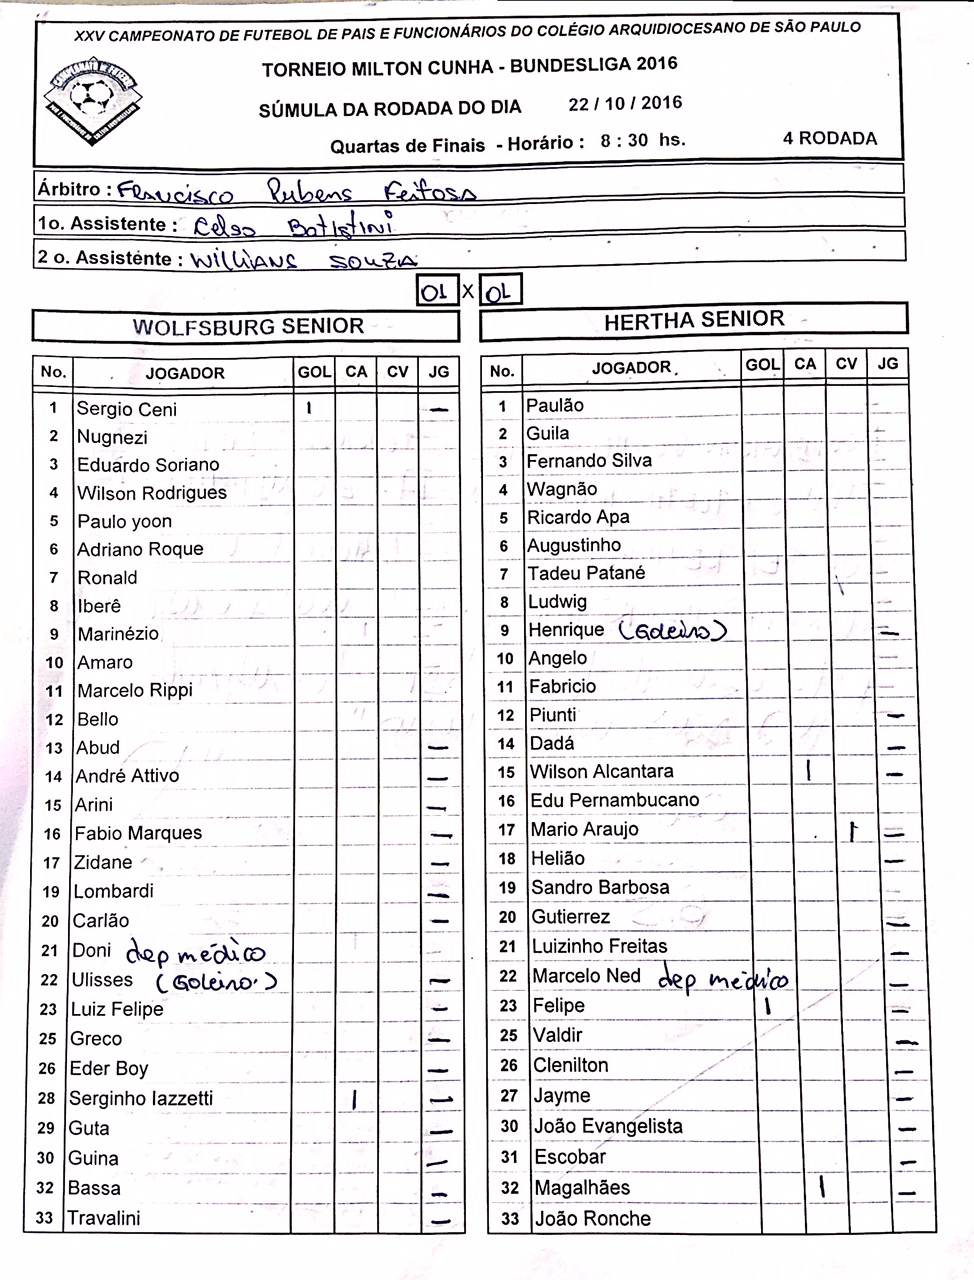 XXV CAMPEONATO DE FUTEBOL DE PAIS E FUNCIONÁRIOS DO COLÉGIO ARQUIDIOCESANO DE SÃO PAULO
TORNEIO MILTON CUNHA - BUNDESLIGA 2016
SÚMULA DA RODADA DO DIA 22 / 10 / 2016
Quartas de Finais - Horário : 8 : 30 hs. 4 RODADA
Árbitro : Francisco Rubens Feitosa
1o. Assistente : Celso Batistini
2 o. Assistente : Willians Souza
01 X 01
WOLFSBURG SENIOR
No. JOGADOR GOL CA CV JG
1 Sergio Ceni I —
2 Nugnezi
3 Eduardo Soriano
4 Wilson Rodrigues
5 Paulo yoon
6 Adriano Roque
7 Ronald
8 Iberê
9 Marinézio
10 Amaro
11 Marcelo Rippi
12 Bello
13 Abud —
14 André Attivo —
15 Arini —
16 Fabio Marques —
17 Zidane —
19 Lombardi —
20 Carlão —
21 Doni dep médico
22 Ulisses (Goleiro.) —
23 Luiz Felipe —
25 Greco —
26 Eder Boy —
28 Serginho Iazzetti I —
29 Guta —
30 Guina —
32 Bassa —
33 Travalini —
HERTHA SENIOR
No. JOGADOR GOL CA CV JG
1 Paulão
2 Guila
3 Fernando Silva
4 Wagnão
5 Ricardo Apa
6 Augustinho
7 Tadeu Patané
8 Ludwig
9 Henrique (Goleiro) —
10 Angelo
11 Fabricio
12 Piunti —
14 Dadá —
15 Wilson Alcantara I —
16 Edu Pernambucano
17 Mario Araujo 1 —
18 Helião —
19 Sandro Barbosa
20 Gutierrez —
21 Luizinho Freitas —
22 Marcelo Ned dep médico —
23 Felipe I —
25 Valdir —
26 Clenilton —
27 Jayme —
30 João Evangelista —
31 Escobar —
32 Magalhães I —
33 João Ronche